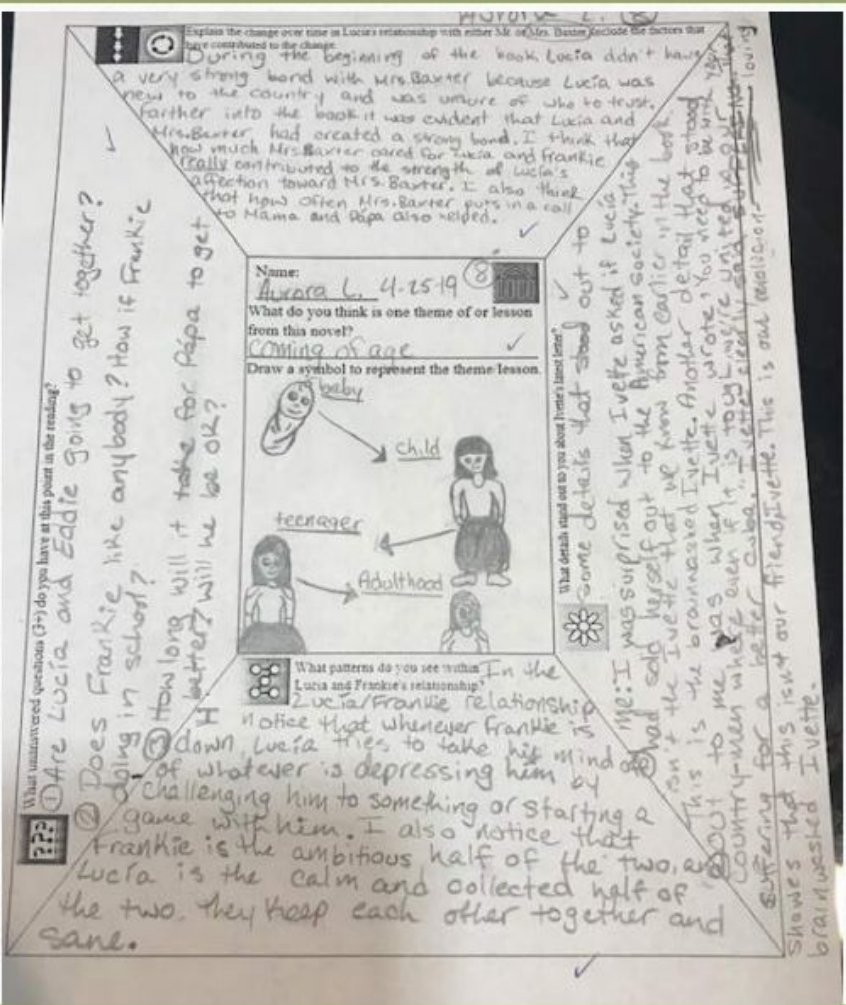 Aurora L. 8
Explain the change over time in Lucia's relationship with either Mr. or Mrs. Baxter. Include the factors that
have contributed to the change.
During the beginning of the book Lucía didn't have
a very strong bond with Mrs. Baxter because Lucía was
new to the country and was unsure of who to trust.
Farther into the book it was evident that Lucia and
Mrs. Baxter, had created a strong bond. I think that
how much Mrs. Baxter cared for Lucía and Frankie
really contributed to the strength of Lucía's
affection toward Mrs. Baxter. I also think
that how often Mrs. Baxter puts in a call
to Mama and Papa also helped.
Name:
Aurora L. 4-25-19 8
What do you think is one theme of or lesson
from this novel?
Coming of age
Draw a symbol to represent the theme/lesson.
baby
child
teenager
Adulthood
What unanswered questions (3+) do you have at this point in the reading?
① Are Lucía and Eddie going to get together?
② Does Frankie like anybody? How if Frankie
doing in school?
③ How long will it take for Papa to get
better? Will he be ok?
???
What patterns do you see within
Lucia and Frankie's relationship?
In the
Lucía/Frankie relationship
notice that whenever Frankie is
down, Lucía tries to take his mind
of whatever is depressing him by
challenging him to something or starting a
game with him. I also notice that
Frankie is the ambitious half of the two, and
Lucía is the calm and collected half of
the two. They keep each other together and
sane.
What details stand out to you about Ivette's latest letter?
Some details that stood out to
me: I was surprised when Ivette asked if Lucía
had sold herself out to the American society. This
isn't the Ivette that we know from earlier in the book.
This is the brainwashed Ivette. Another detail that stood
out to me was when Ivette wrote, "You need to be with your
country-men where even if it is tough, we're united in our
suffering for a better cuba."
showes that this isn't our friend, Ivette. This is our revolution-loving
brainwashed Ivette.